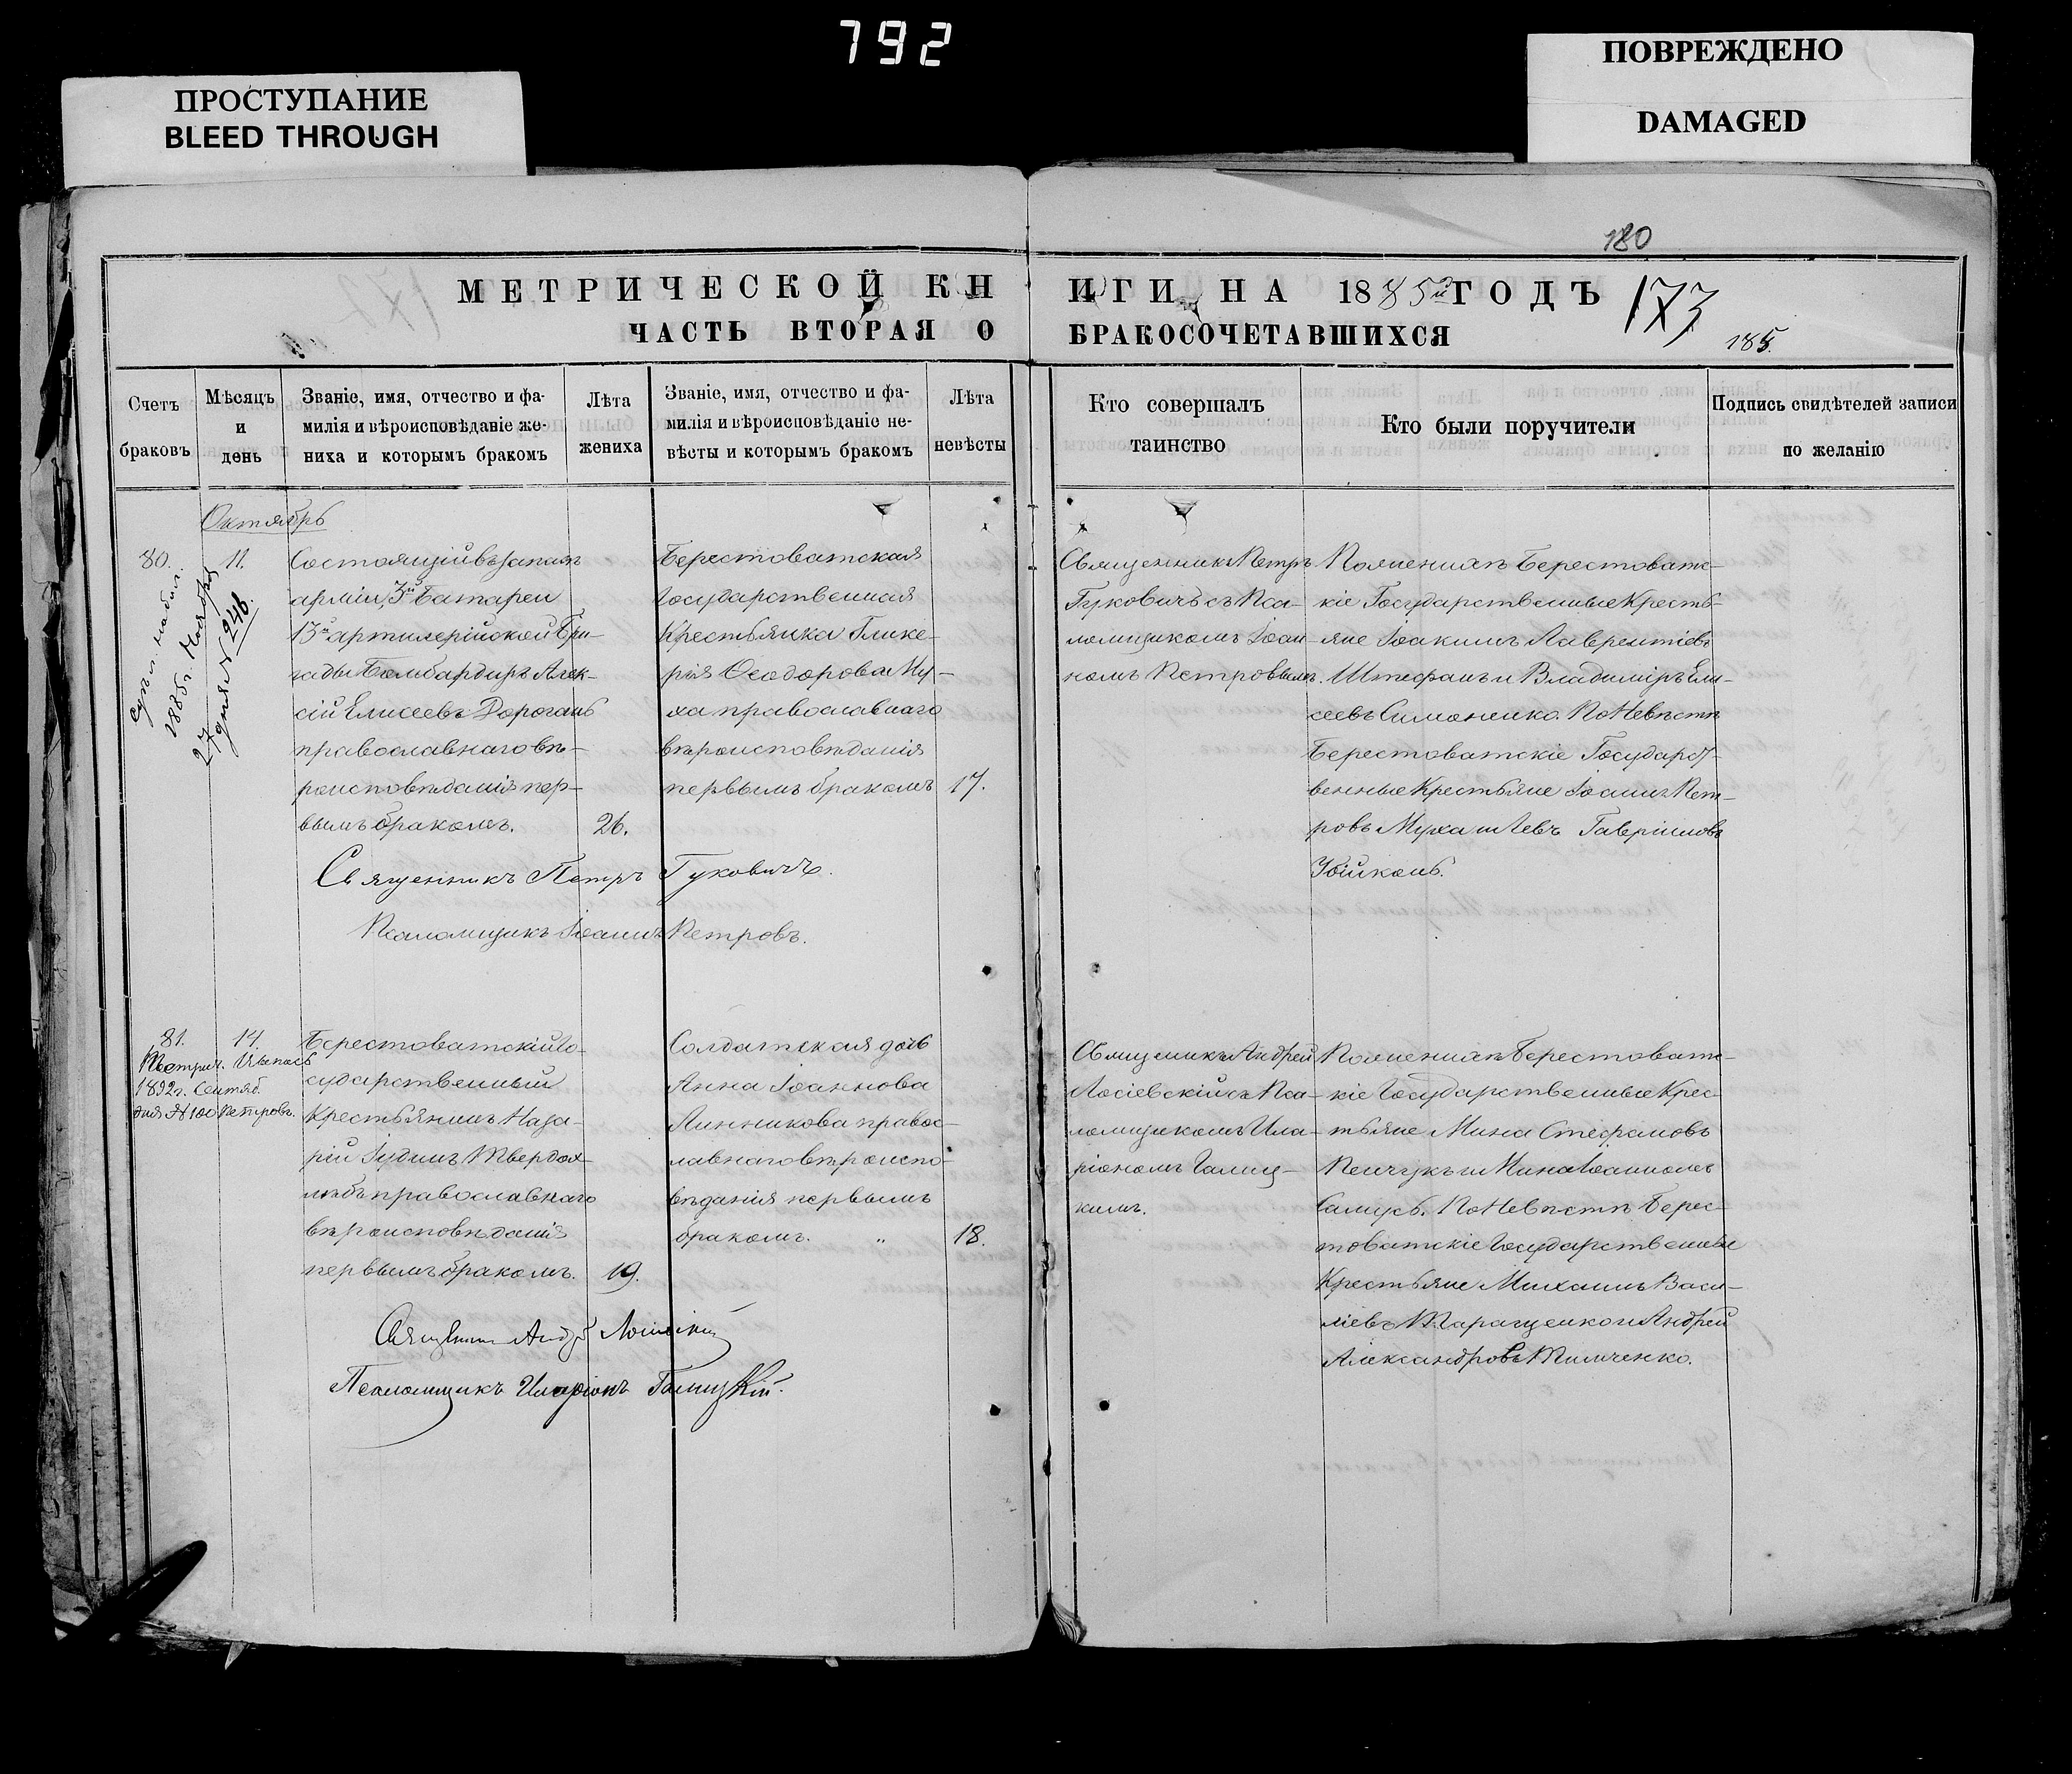 792
ПРОСТУПАНИЕ
BLEED THROUGH
ПОВРЕЖДЕНО
DAMAGED
180
МЕТРИЧЕСКОЙ КНИГИ НА 1885й ГОДЪ
173
ЧАСТЬ ВТОРАЯ О БРАКОСОЧЕТАВШИХСЯ
185.
Счетъ
браковъ
Мѣсяцъ
и
день
Званіе, имя, отчество и фа-
милія и вѣроисповѣданіе же-
ниха и которымъ бракомъ
Лѣта
жениха
Званіе, имя, отчество и фа-
милія и вѣроисповѣданіе не-
вѣсты и которымъ бракомъ
Лѣта
невѣсты
Кто совершалъ
таинство
Кто были поручители
Подпись свидѣтелей записи
по желанію
Октябрь
80.
1885г. Ноября
27 дня № 246.
11.
Состоящій въ запасѣ
арміи, 3й Батареи
13й артилерійской Бри-
гады Бомбардиръ Алек-
сій Елисеевъ Дорогань
православнаго вѣ-
роисповѣданія пер-
вымъ бракомъ.
26.
Берестоватская
Государственная
Крестьянка Глике-
рія Ѳеодорова Му-
ха православнаго
вѣроисповѣданія
первымъ бракомъ
17.
Священникъ Петръ
Гуковичъ съ Пса-
ломщикомъ Іоан-
номъ Петровымъ.
По женихѣ Берестоват-
кіе Государственные Кресть-
яне Іоакимъ Лаврентіевъ
Штефанъ и Владиміръ Ели-
сеевъ Симоненко. По Невѣстѣ
Берестоватскіе Государст-
венные Крестьяне Іоаннъ Пет-
ровъ Муха и Левъ Гавріиловъ
Убійконь.
Священникъ Петръ Гуковичъ.
Псаломщикъ Іоаннъ Петровъ.
81.
14.
Метрич. выпись
1892г. Сентяб.
дня № 100 Петровъ.
Берестоватскій Го-
сударственный
Крестьянинъ Наза-
рій Іудинъ Твердох-
лѣбъ православнаго
вѣроисповѣданія
первымъ бракомъ.
19.
Солдатская дочь
Анна Іоаннова
Линникова правос-
лавнаго вѣроиспо-
вѣданія первымъ
бракомъ. "
18.
Священникъ Андрей
Лосіевскій съ Пса-
ломщикомъ Ила-
ріономъ Галиц-
кимъ.
По женихѣ Берестоват-
кіе Государственные Крес-
тьяне Мина Стефановъ
Пенчукъ и Мина Іоанновъ
Самусь. По Невѣстѣ Берес-
товатскіе Государственные
Крестьяне Михаилъ Васи-
ліевъ Таращенко и Андрей
Александровъ Тимченко.
Священникъ Андрей Лосіевскій
Псаломщикъ Иларіонъ Галицкій.